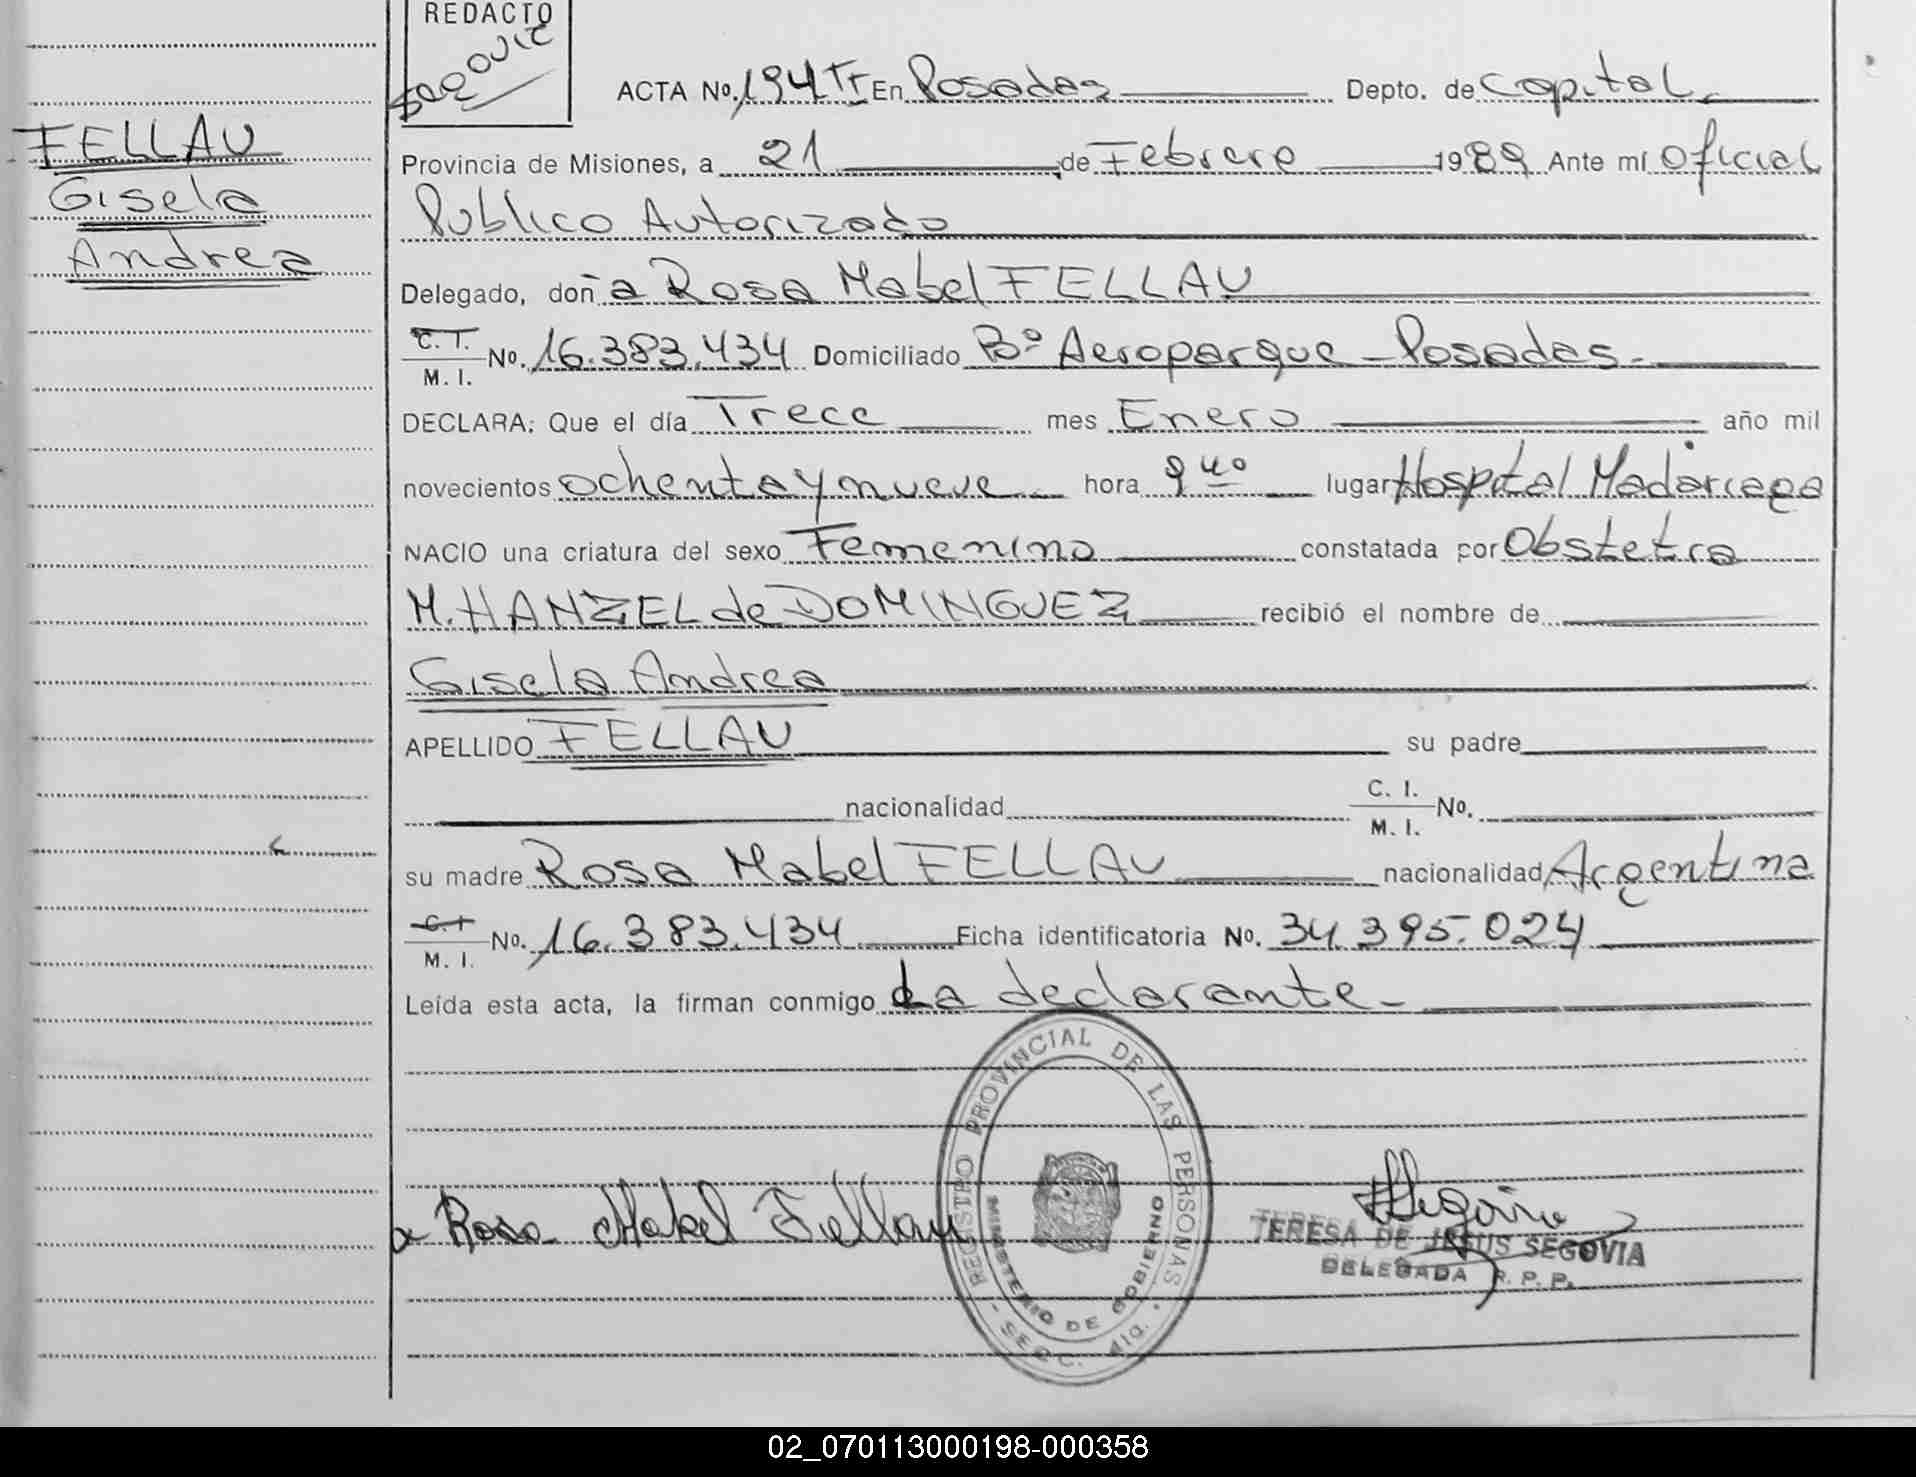 REDACTO
ACTA No. 194 Tr En Posadas Depto. de Capital
FELLAU
Gisela
Andrea
Provincia de Misiones, a 21 de Febrero 1989 Ante mí Oficial
Publico Autorizado
Delegado, doña Rosa Mabel FELLAU
C. I.
M. I. No. 16.383.434 Domiciliado Bº Aeroparque - Posadas.
DECLARA: Que el día Trece mes Enero año mil
novecientos ochenta y nueve hora 9 40 lugar Hospital Madariaga
NACIO una criatura del sexo Femenino constatada por Obstetra
M. HANZEL de DOMINGUEZ recibió el nombre de
Gisela Andrea
APELLIDO FELLAU su padre
nacionalidad C. I.
M. I. No.
su madre Rosa Mabel FELLAU nacionalidad Argentina
C. I
M. I. No. 16.383.434 Ficha identificatoria No. 34.395.024
Leída esta acta, la firman conmigo La declarante -
Rosa Mabel Fellau
REGISTRO PROVINCIAL DE LAS PERSONAS
MINISTERIO DE GOBIERNO
- SECC. 4ta. -
TERESA DE JESUS SEGOVIA
DELEGADA R. P. P.
02_070113000198-000358